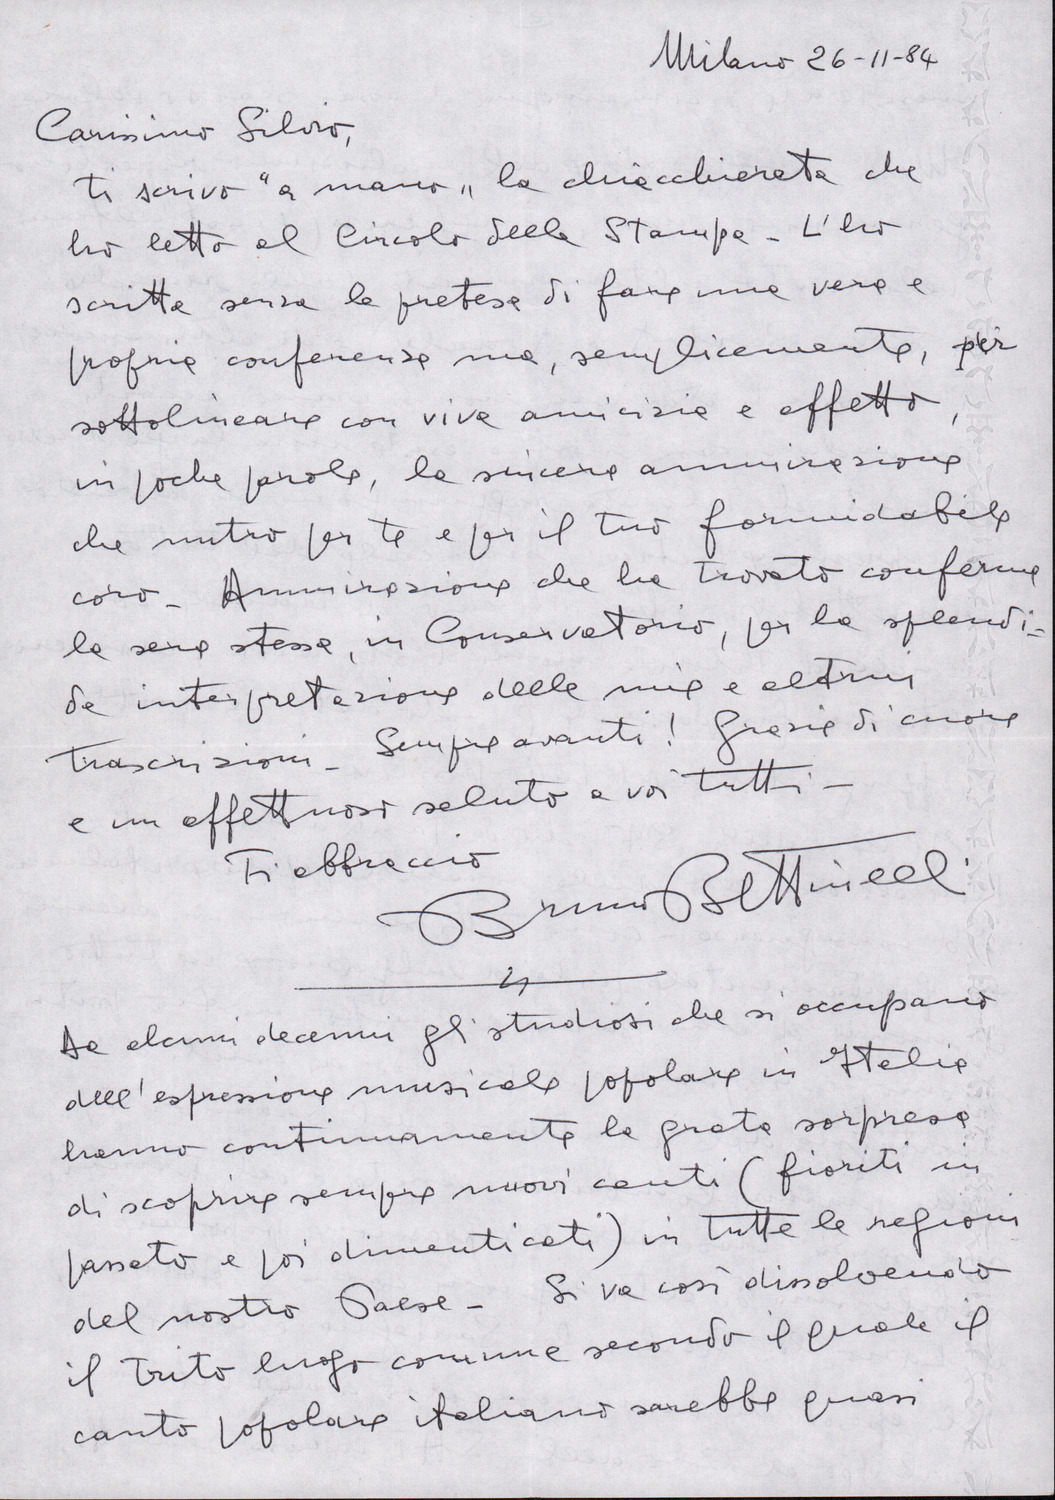 Milano 26-11-84
Carissimo Silvio,
ti scrivo "a mano" la chiacchierata che
ho letto al Circolo della Stampa - L'ho
scritta senza la pretesa di fare una vera e
propria conferenza ma, semplicemente, per
sottolineare con viva amicizia e affetto,
in poche parole, la sincera ammirazione
che nutro per te e per il tuo formidabile
coro - Ammirazione che ha trovato conferma
la sera stessa, in Conservatorio, per la splendi-
da interpretazione delle mie e altrui
trascrizioni - Sempre avanti! Grazie di cuore
e un affettuoso saluto a voi tutti -
Ti abbraccio
Bruno Bettinelli
Da alcuni decenni gli studiosi che si occupano
dell'espressione musicale popolare in Italia
hanno continuamente la grata sorpresa
di scoprire sempre nuovi canti (fioriti in
passato e poi dimenticati) in tutte le regioni
del nostro Paese - Si va così dissolvendo
il trito luogo comune secondo il quale il
canto popolare italiano sarebbe quasi